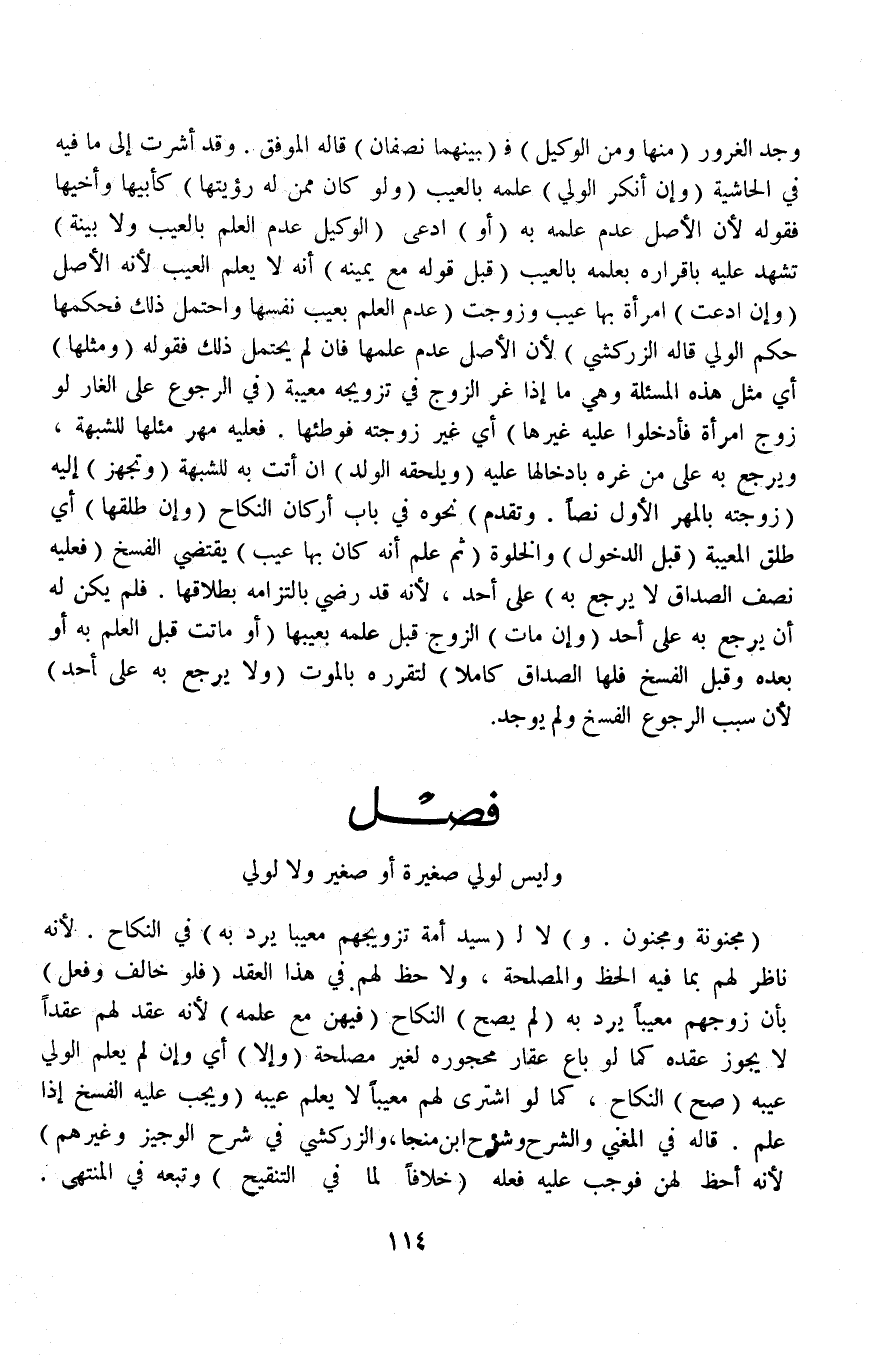 وجد الغرور ( منها ومن الوكيل ) فـ ( بينهما نصفان ) قاله الموفق . وقد أشرت إلى ما فيه
في الحاشية ( وإن أنكر الولي ) علمه بالعيب ( ولو كان ممن له رؤيتها ) كأبيها وأخيها
فقوله لأن الأصل عدم علمه به ( أو ) ادعى ( الوكيل عدم العلم بالعيب ولا بينة )
تشهد عليه باقراره بعلمه بالعيب ( قبل قوله مع يمينه ) أنه لا يعلم العيب لأنه الأصل
( وإن ادعت ) امرأة بها عيب وزوجت ( عدم العلم بعيب نفسها واحتمل ذلك فحكمها
حكم الولي قاله الزركشي ) لأن الأصل عدم علمها فان لم يحتمل ذلك فقوله ( ومثلها )
أي مثل هذه المسئلة وهي ما إذا غر الزوج في تزويجه معيبة ( في الرجوع على الغار لو
زوج امرأة فأدخلوا عليه غيرها ) أي غير زوجته فوطئها . فعليه مهر مثلها للشبهة ،
ويرجع به على من غره بادخالها عليه ( ويلحقه الولد ) ان أتت به للشبهة ( وتجهز ) إليه
( زوجته بالمهر الأول نصاً . وتقدم ) نحوه في باب أركان النكاح ( وإن طلقها ) أي
طلق المعيبة ( قبل الدخول ) والخلوة ( ثم علم أنه كان بها عيب ) يقتضي الفسخ ( فعليه
نصف الصداق لا يرجع به ) على أحد ، لأنه قد رضي بالتزامه بطلاقها . فلم يكن له
أن يرجع به على أحد ( وإن مات ) الزوج قبل علمه بعيبها ( أو ماتت قبل العلم به أو
بعده وقبل الفسخ فلها الصداق كاملا ) لتقرره بالموت ( ولا يرجع به على أحد )
لأن سبب الرجوع الفسخ ولم يوجد.
فصل
وليس لولي صغيرة أو صغير ولا لولي
( مجنونة ومجنون . و ) لا لـ ( سيد أمة تزويجهم معيبا يرد به ) في النكاح . لأنه
ناظر لهم بما فيه الحظ والمصلحة ، ولا حظ لهم في هذا العقد ( فلو خالف وفعل )
بأن زوجهم معيباً يرد به ( لم يصح ) النكاح ( فيهن مع علمه ) لأنه عقد لهم عقداً
لا يجوز عقده كما لو باع عقار محجوره لغير مصلحة ( وإلا ) أي وإن لم يعلم الولي
عيبه ( صح ) النكاح ، كما لو اشترى لهم معيباً لا يعلم عيبه ( ويجب عليه الفسخ إذا
علم . قاله في المغني والشرح وشرح ابن منجا، والزركشي في شرح الوجيز وغيرهم )
لأنه أحظ لهن فوجب عليه فعله ( خلافاً لما في التنقيح ) وتبعه في المنتهى .
١١٤